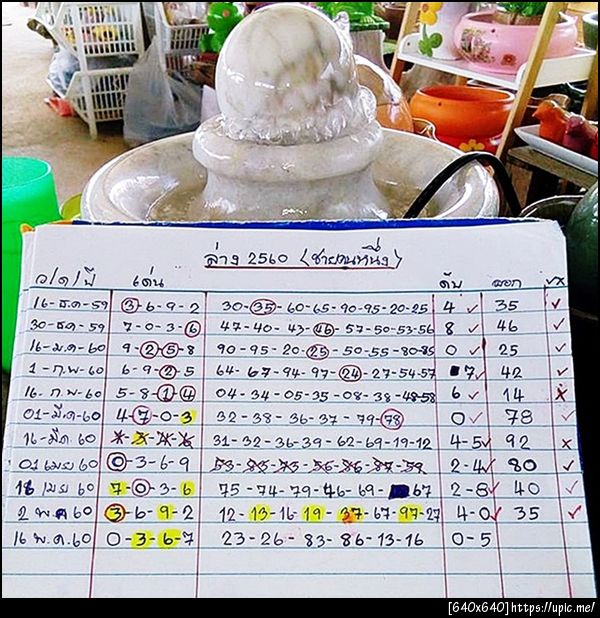 ล่าง 2560 (ชายคนหนึ่ง)
ว/ด/ปี เด่น ดับ ออก ✓x
16-ธ.ค-59 3-6-9-2 30-35-60-65-90-95-20-25 4 ✓ 35 ✓
30-ธ.ค-59 7-0-3-6 47-40-43-46-57-50-53-56 8 ✓ 46 ✓
16-ม.ค-60 9-2-5-8 90-95-20-25-50-55-80-85 0 ✓ 25 ✓
1-ก.พ-60 6-9-2-5 64-67-94-97-24-27-54-57 7 ✓ 42 ✓
16-ก.พ-60 5-8-1-4 04-34-05-35-08-38-48-58 6 ✓ 14 x
01-มีค-60 4-7-0-3 32-38-36-37-79-78 0 ✓ 78 ✓
16-มีค 60 31-32-36-39-62-69-19-12 4-5 ✓ 92 x
01 เมย 60 0-3-6-9 53-83-73-56-86-87-59 2-4 ✓ 80 ✓
16 เมย 60 7-0-3-6 75-74-79-46-69- 67 2-8 ✓ 40 ✓
2 พ.ค 60 3-6-9-2 12-13-16-19-37-67-97-27 4-0 ✓ 35 ✓
16 พ.ค.60 0-3-6-7 23-26-83-86-13-16 0-5
[640x640] https://upic.me/